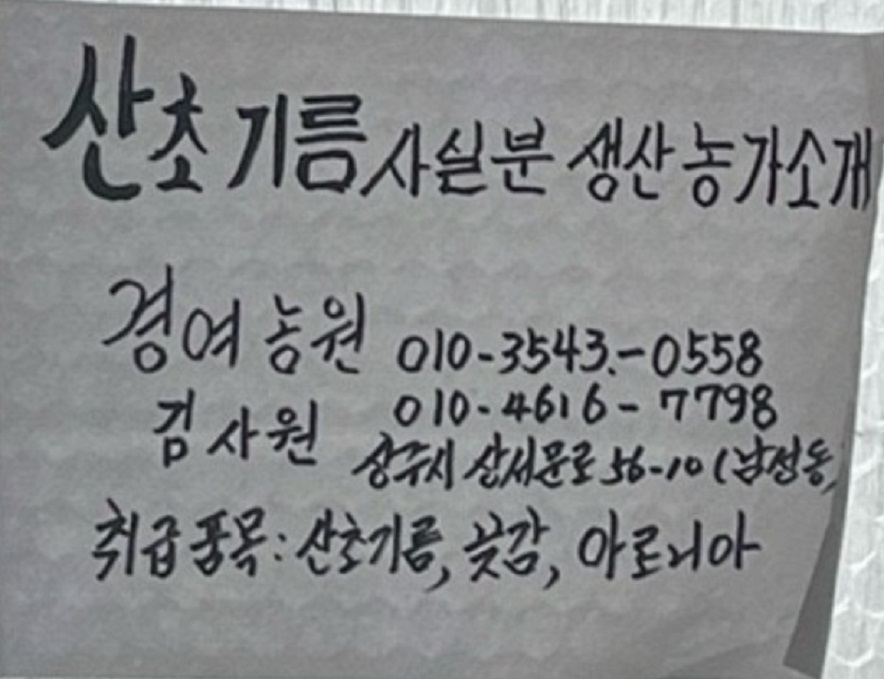 산초기름 사실분 생산농가소개
경여농원 010-3543.-0558
김사원 010-4616-7798
상주시 상서문로 56-10 (남성동)
취급품목: 산초기름, 곶감, 아로니아